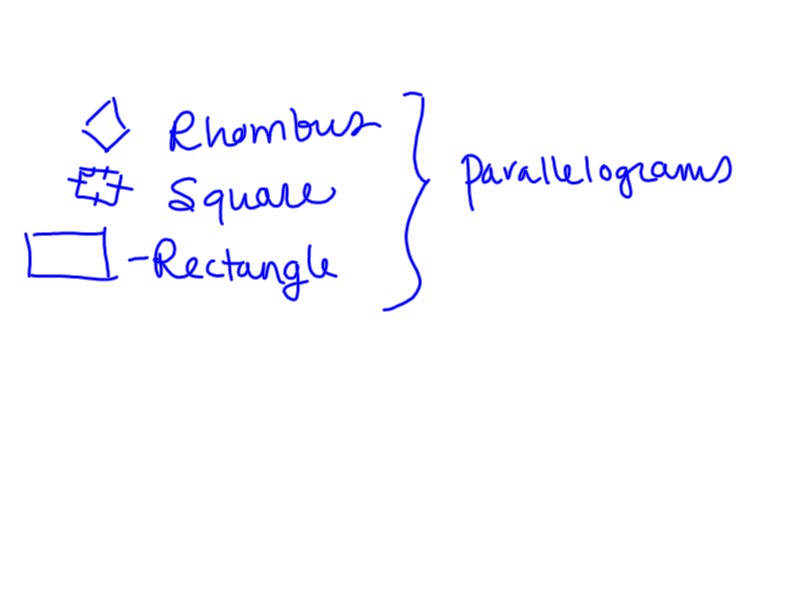 Rhombus
Square
-Rectangle
parallelograms